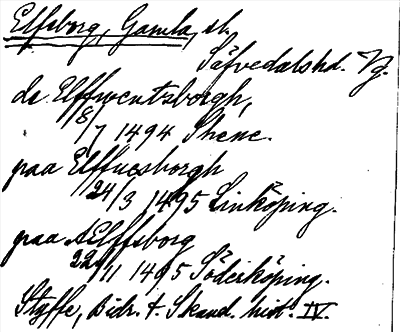 Elfsborg, Gamla, sl.
Säfvedalshd. Vg.
de Elffwentzborgh,
8/7 1494 Skene.
paa Elffuesborgh
24/3 1495 Linköping.
paa AElffsborg
22/11 1495 Söderköping.
Styffe, Bidr. t. Skand. hist. IV.